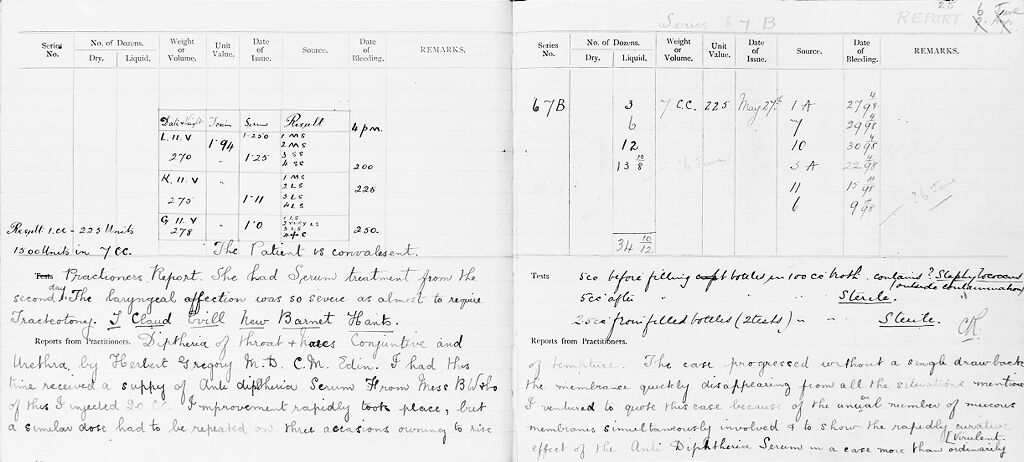 Series No.
No. of Dozens.
Dry.
Liquid.
Weight or Volume.
Unit Value.
Date of Issue.
Source.
Date of Bleeding.
REMARKS.
Date & Weight Toxin Serum Result
4 pm.
L. 11. V 1.94 1.250 1 MS
2 MS
270 " 1.25 3 SS
4 SC
200
K. 11. V " 1 MS
2 LS
225
275 1.11 3 LS
4 LS
G 11. V " 1.0 1 LS
2 very LS
278 3 LS
4 + C
250.
Result 1.cc - 225 Units
1500 Units in 7 CC.
The Patient is convalesent.
Tests Practioners Report. She had Serum treatment from the
second day. The laryngeal affection was so severe as almost to require
Tracteotomy. J Claud Evill New Barnet Hants.
Reports from Practitioners. Diptheria of throat + nares Conjuntive and
Urethra, by Herbert Gregory M.D. C.M. Edin. I had this
time received a suppy of Anti diphtheria Serum From Mess B W & Co
of this I injected 20 cc. I improvement rapidly took place, but
a similar dose had to be repeated on three accasions owning to rise
Series 67 B
25
REPORT. 6 June
2. Ap.
Series No.
No. of Dozens.
Dry.
Liquid.
Weight or Volume.
Unit Value.
Date of Issue.
Source.
Date of Bleeding.
REMARKS.
67B 3 7 CC. 225 May 27th 1 A 27 4/98
6 7 29 4/98
12 10 30 4/98
13 10/8 ? 6 June 3 A 22 4/98
11 15 4/98
6 9 4/98
? 6 June
34 10/12
Tests 5cc before filling bottles, in 100 cc broth. contains ? Staphylococcus
(outside contamination)
5cc after " " " Sterile.
25cc from filled bottles (2 tests) " " Sterile.
Reports from Practitioners.
of tempture. The case progressed without a single drawback
the membrance quickly disappearing from all the situations mentione
I rentured to quote this case because of the unusual number of mucous
membranes simultineously involved & to show the rapidly curative
effect of the Anti Diphtheria Serum in a case more than ordinarily
[virulent.